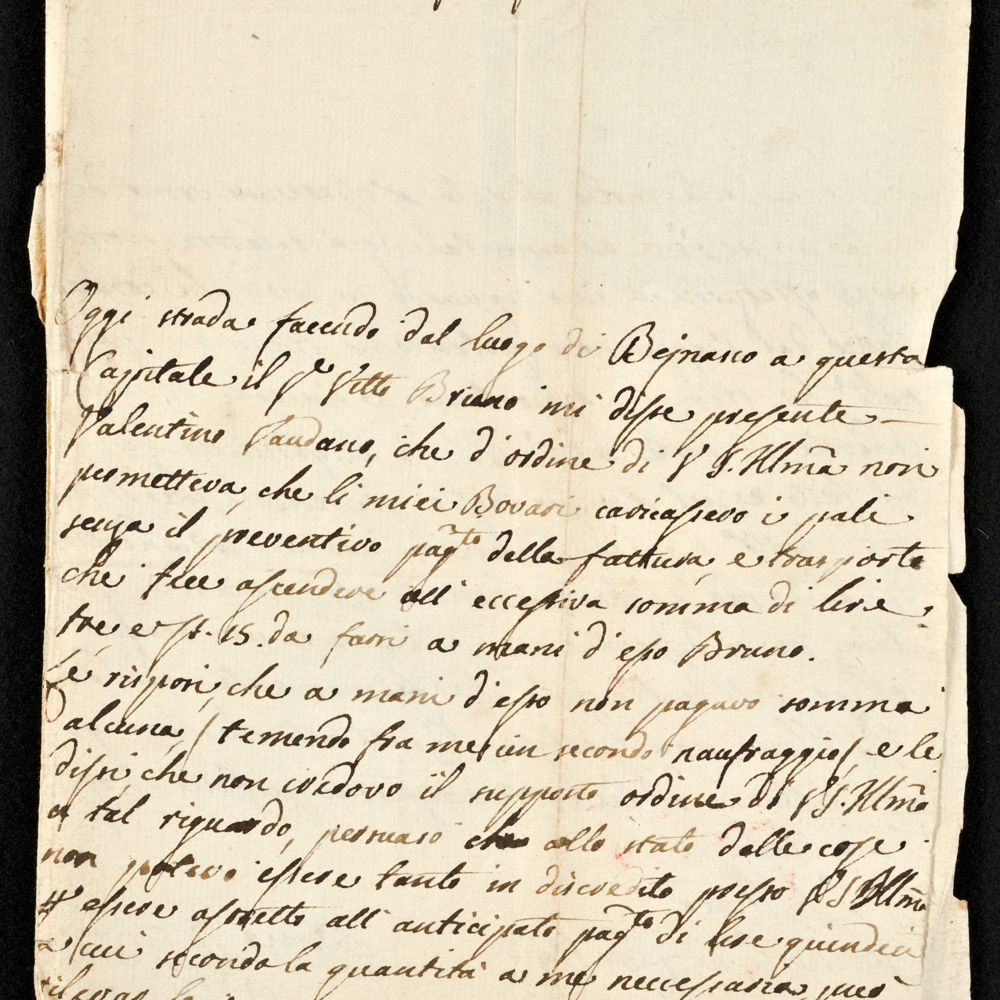 Oggi strada facendo dal luogo di Bejnasco a questa
Capitale il Sr Vitto Bruno mi disse presente
Valentino Gaudano, che d'ordine di V.S. Illma non
permetteva, che li miei Bovari caricassero i pali
senza il preventivo pagto della fattura, e trasporto
che fece ascendere all'eccessiva somma di lire
tre e st. 15. da farsi a mani d'esso Bruno.
Le risposi, che a mani d'esso non pagavo somma
alcuna, (temendo fra me un secondo naufraggio) e le
dissi, che non credevo il supposto ordine di V.S. Illma
a tal riguardo, persuaso che allo stato delle cose
non potevo essere tanto in discredito presso V.S. Illma
essere astretto all'anticipato pagto di lire quindeci
a cui secondo la quantità a me necessaria, può